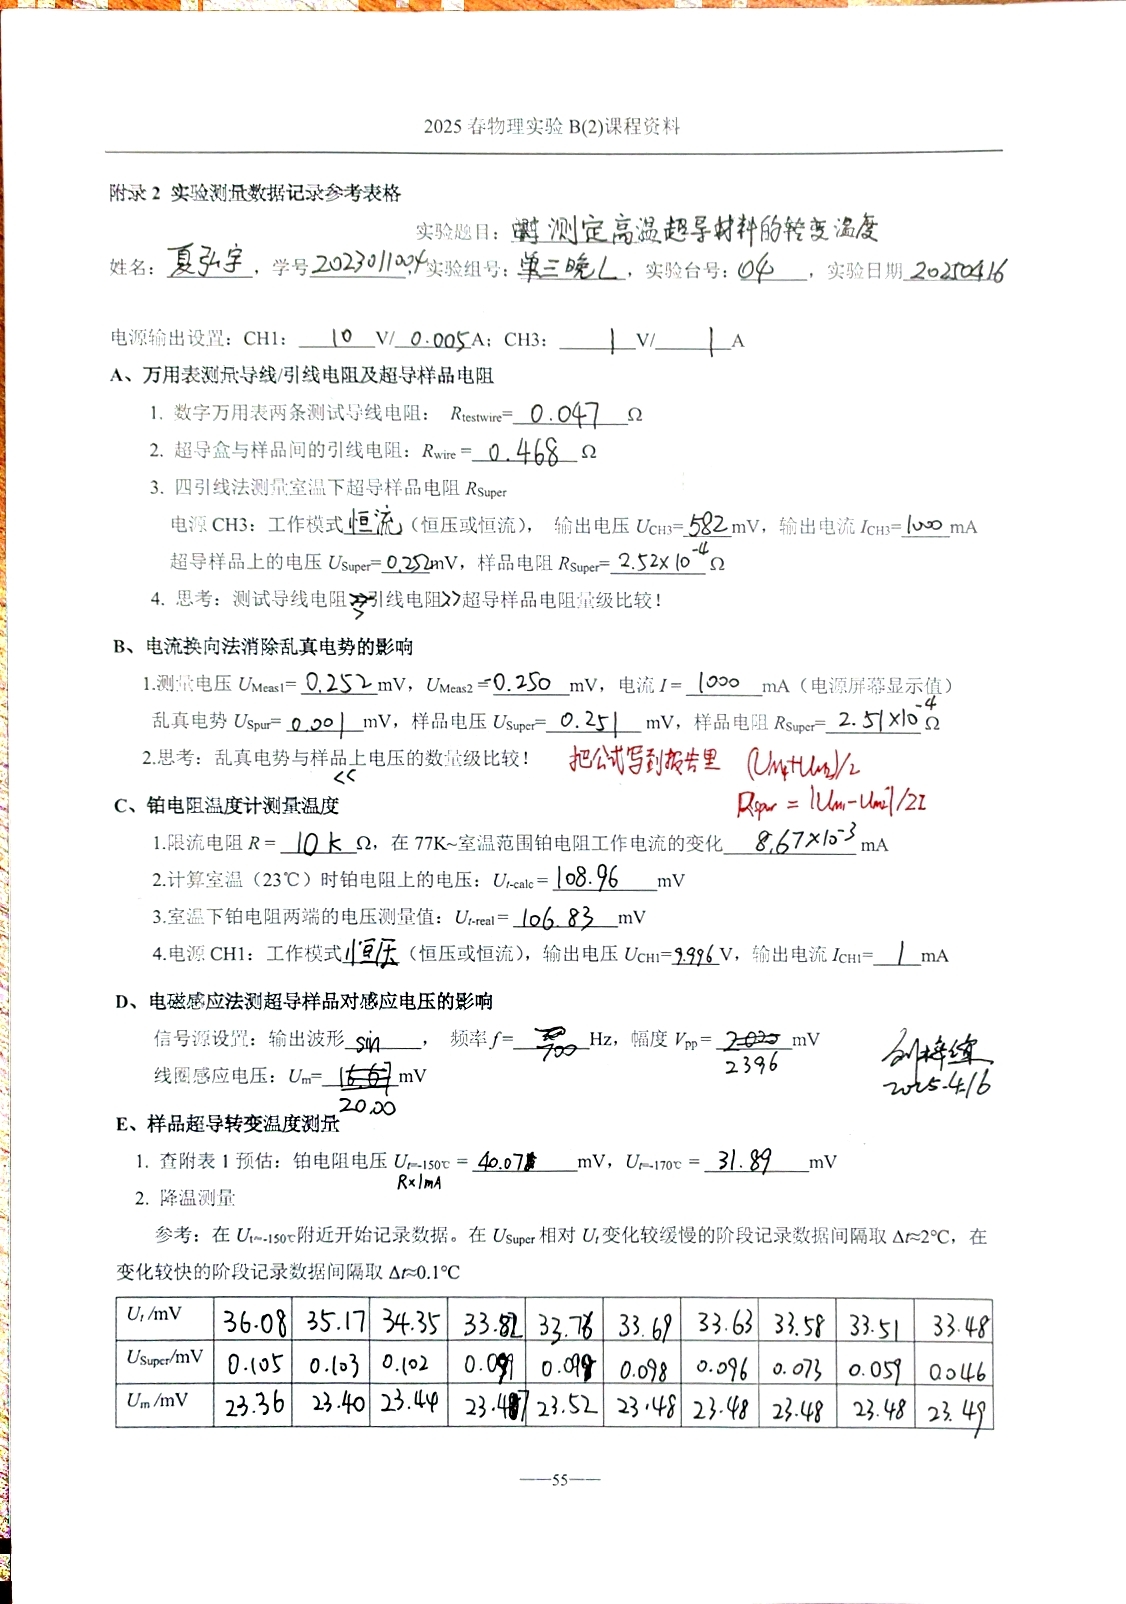 2025 春物理实验 B(2)课程资料
附录 2 实验测量数据记录参考表格
实验题目: 测定高温超导材料的转变温度
姓名: 夏弘宇, 学号 2023011004 实验组号: 单三晚L, 实验台号: 04, 实验日期 20250416
电源输出设置: CH1: 10 V/ 0.005 A; CH3: 1 V/ 1 A
A、万用表测量导线/引线电阻及超导样品电阻
1. 数字万用表两条测试导线电阻: Rtestwire= 0.047 Ω
2. 超导盒与样品间的引线电阻: Rwire = 0.468 Ω
3. 四引线法测量室温下超导样品电阻 RSuper
电源 CH3: 工作模式 恒流 (恒压或恒流), 输出电压 UCH3= 582 mV, 输出电流 ICH3= 1000 mA
超导样品上的电压 USuper= 0.252 mV, 样品电阻 RSuper= 2.52×10⁻⁴ Ω
4. 思考: 测试导线电阻 > 引线电阻>>超导样品电阻量级比较!
B、电流换向法消除乱真电势的影响
1.测量电压 UMeas1= 0.252 mV, UMeas2 = -0.250 mV, 电流 I = 1000 mA (电源屏幕显示值)
乱真电势 USpur= 0.001 mV, 样品电压 USuper= 0.251 mV, 样品电阻 RSuper= 2.51×10⁻⁴ Ω
2.思考: 乱真电势与样品上电压的数量级比较! 把公式写到报告里 (Um1+Um2)/2
<<
Rspur = |Um1-Um2|/2I
C、铂电阻温度计测量温度
1.限流电阻 R = 10k Ω, 在 77K~室温范围铂电阻工作电流的变化 8.67×10⁻³ mA
2.计算室温 (23℃) 时铂电阻上的电压: Ut-calc = 108.96 mV
3.室温下铂电阻两端的电压测量值: Ut-real = 106.83 mV
4.电源 CH1: 工作模式 恒压 (恒压或恒流), 输出电压 UCH1= 9.996 V, 输出电流 ICH1= 1 mA
D、电磁感应法测超导样品对感应电压的影响
信号源设置: 输出波形 sin, 频率 f= 700 Hz, 幅度 Vpp = 2020 mV
2396
2025.4.16
线圈感应电压: Um= 16.67 mV
20.00
E、样品超导转变温度测量
1. 查附表 1 预估: 铂电阻电压 Ut=-150℃ = 40.07 mV, Ut=-170℃ = 31.89 mV
R×1mA
2. 降温测量
参考: 在 Ut≈-150℃附近开始记录数据。在 USuper 相对 Ut 变化较缓慢的阶段记录数据间隔取 Δt≈2℃, 在
变化较快的阶段记录数据间隔取 Δt≈0.1℃
Ut /mV 36.08 35.17 34.35 33.82 33.76 33.69 33.63 33.58 33.51 33.48
USuper/mV 0.105 0.103 0.102 0.099 0.098 0.098 0.096 0.073 0.059 0.046
Um /mV 23.36 23.40 23.44 23.47 23.52 23.48 23.48 23.48 23.48 23.49
——55——